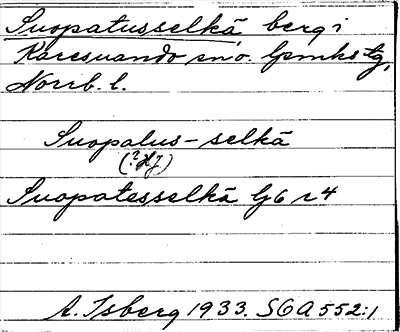 Suopatusselkä, berg i
Karesuando sn o. lpmks tg,
Norrb. l.
Suopalus-selkä
(? HJ)
Suopatesselkä bj6 r4
A. Isberg 1933. SGA 552:1